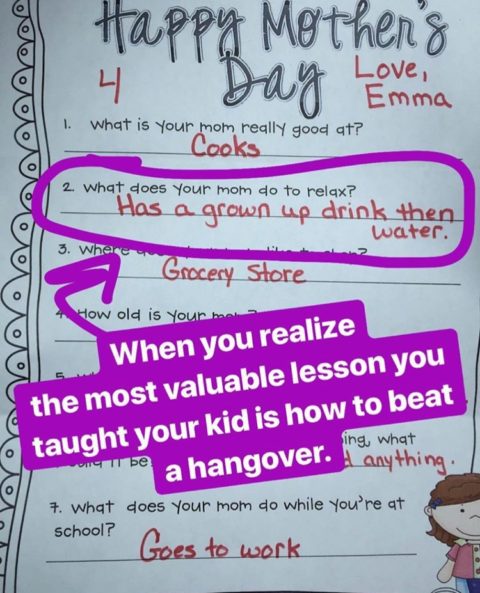 Happy Mother's
Day
4
Love,
Emma
1. What is your mom really good at?
Cooks
2. What does your mom do to relax?
Has a grown up drink then
water.
3. Where
Grocery Store
How old is your
When you realize
the most valuable lesson you
taught your kid is how to beat
a hangover.
what
anything.
7. What does your mom do while you're at
school?
Goes to work